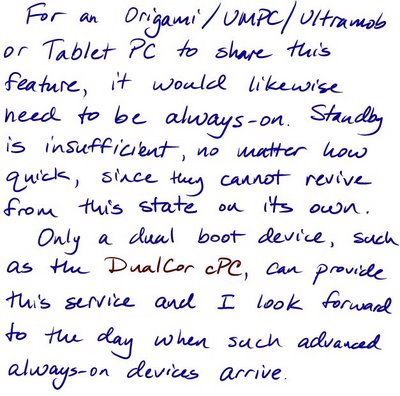 For an Origami/UMPC/Ultramob
or Tablet PC to share this
feature, it would likewise
need to be always-on. Standby
is insufficient, no matter how
quick, since they cannot revive
from this state on its own.
Only a dual boot device, such
as the DualCor cPC, can provide
this service and I look forward
to the day when such advanced
always-on devices arrive.